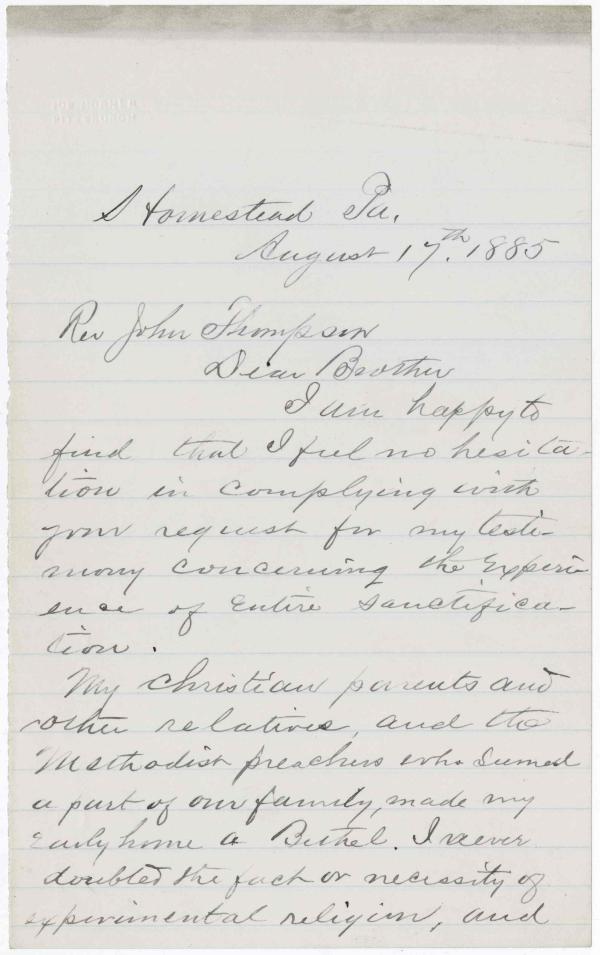 S Homestead Pa.
August 17th. 1885
Rev John Thompson
Dear Brother
I am happy to
find that I feel no hesita-
tion in complying with
your request for my testi-
mony concerning the Experi-
ence of Entire Sanctifica-
tion.
My Christian parents and
other relatives, and the
Methodist preachers who seemed
a part of our family, made my
Early home a Bethel. I never
doubted the fact or necessity of
experimental religion, and